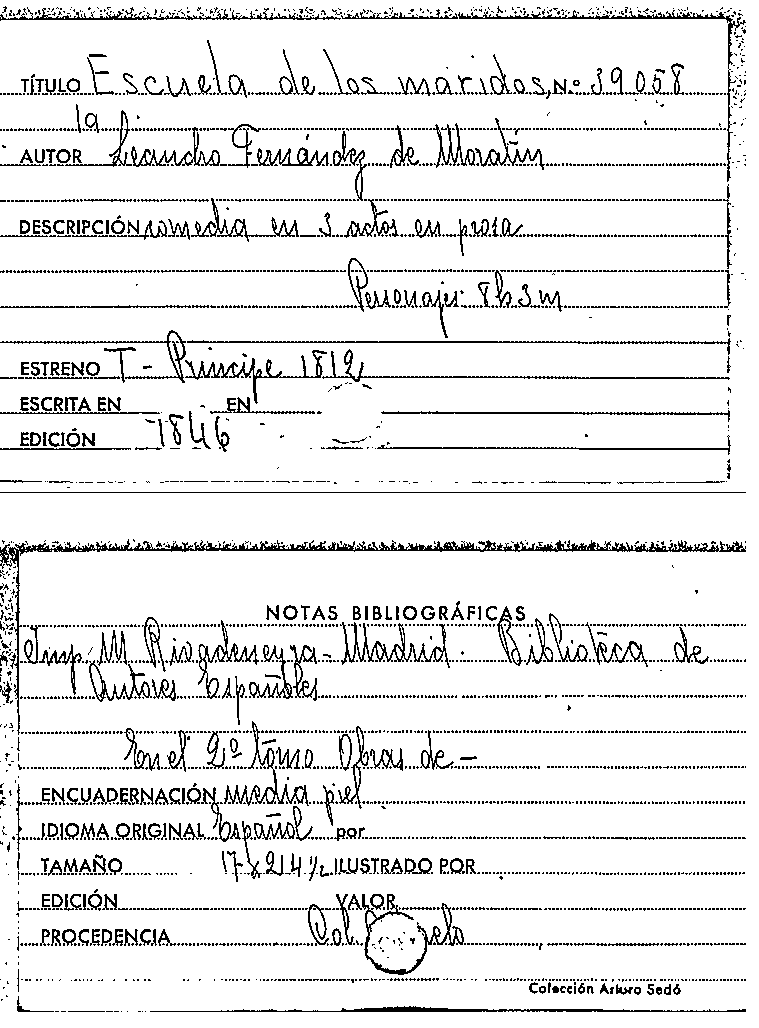 TÍTULO Escuela de los maridos, Nº 39058
la
AUTOR Leandro Fernández de Moratín
DESCRIPCIÓN comedia en 3 actos en prosa
Personajes 8h3m
ESTRENO T - Principe 1812
ESCRITA EN EN
EDICIÓN 1846
NOTAS BIBLIOGRÁFICAS
Imp. M Rivadeneyra - Madrid. Biblioteca de
Autores Españoles
En el 2º tomo Obras de -
ENCUADERNACIÓN media piel
IDIOMA ORIGINAL Español por
TAMAÑO 17 x 24 ½ ILUSTRADO POR
EDICIÓN VALOR
PROCEDENCIA Col.
Colección Arturo Sedó